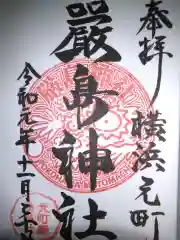 奉拝
横浜元町
厳島神社
令和元年十一月三十